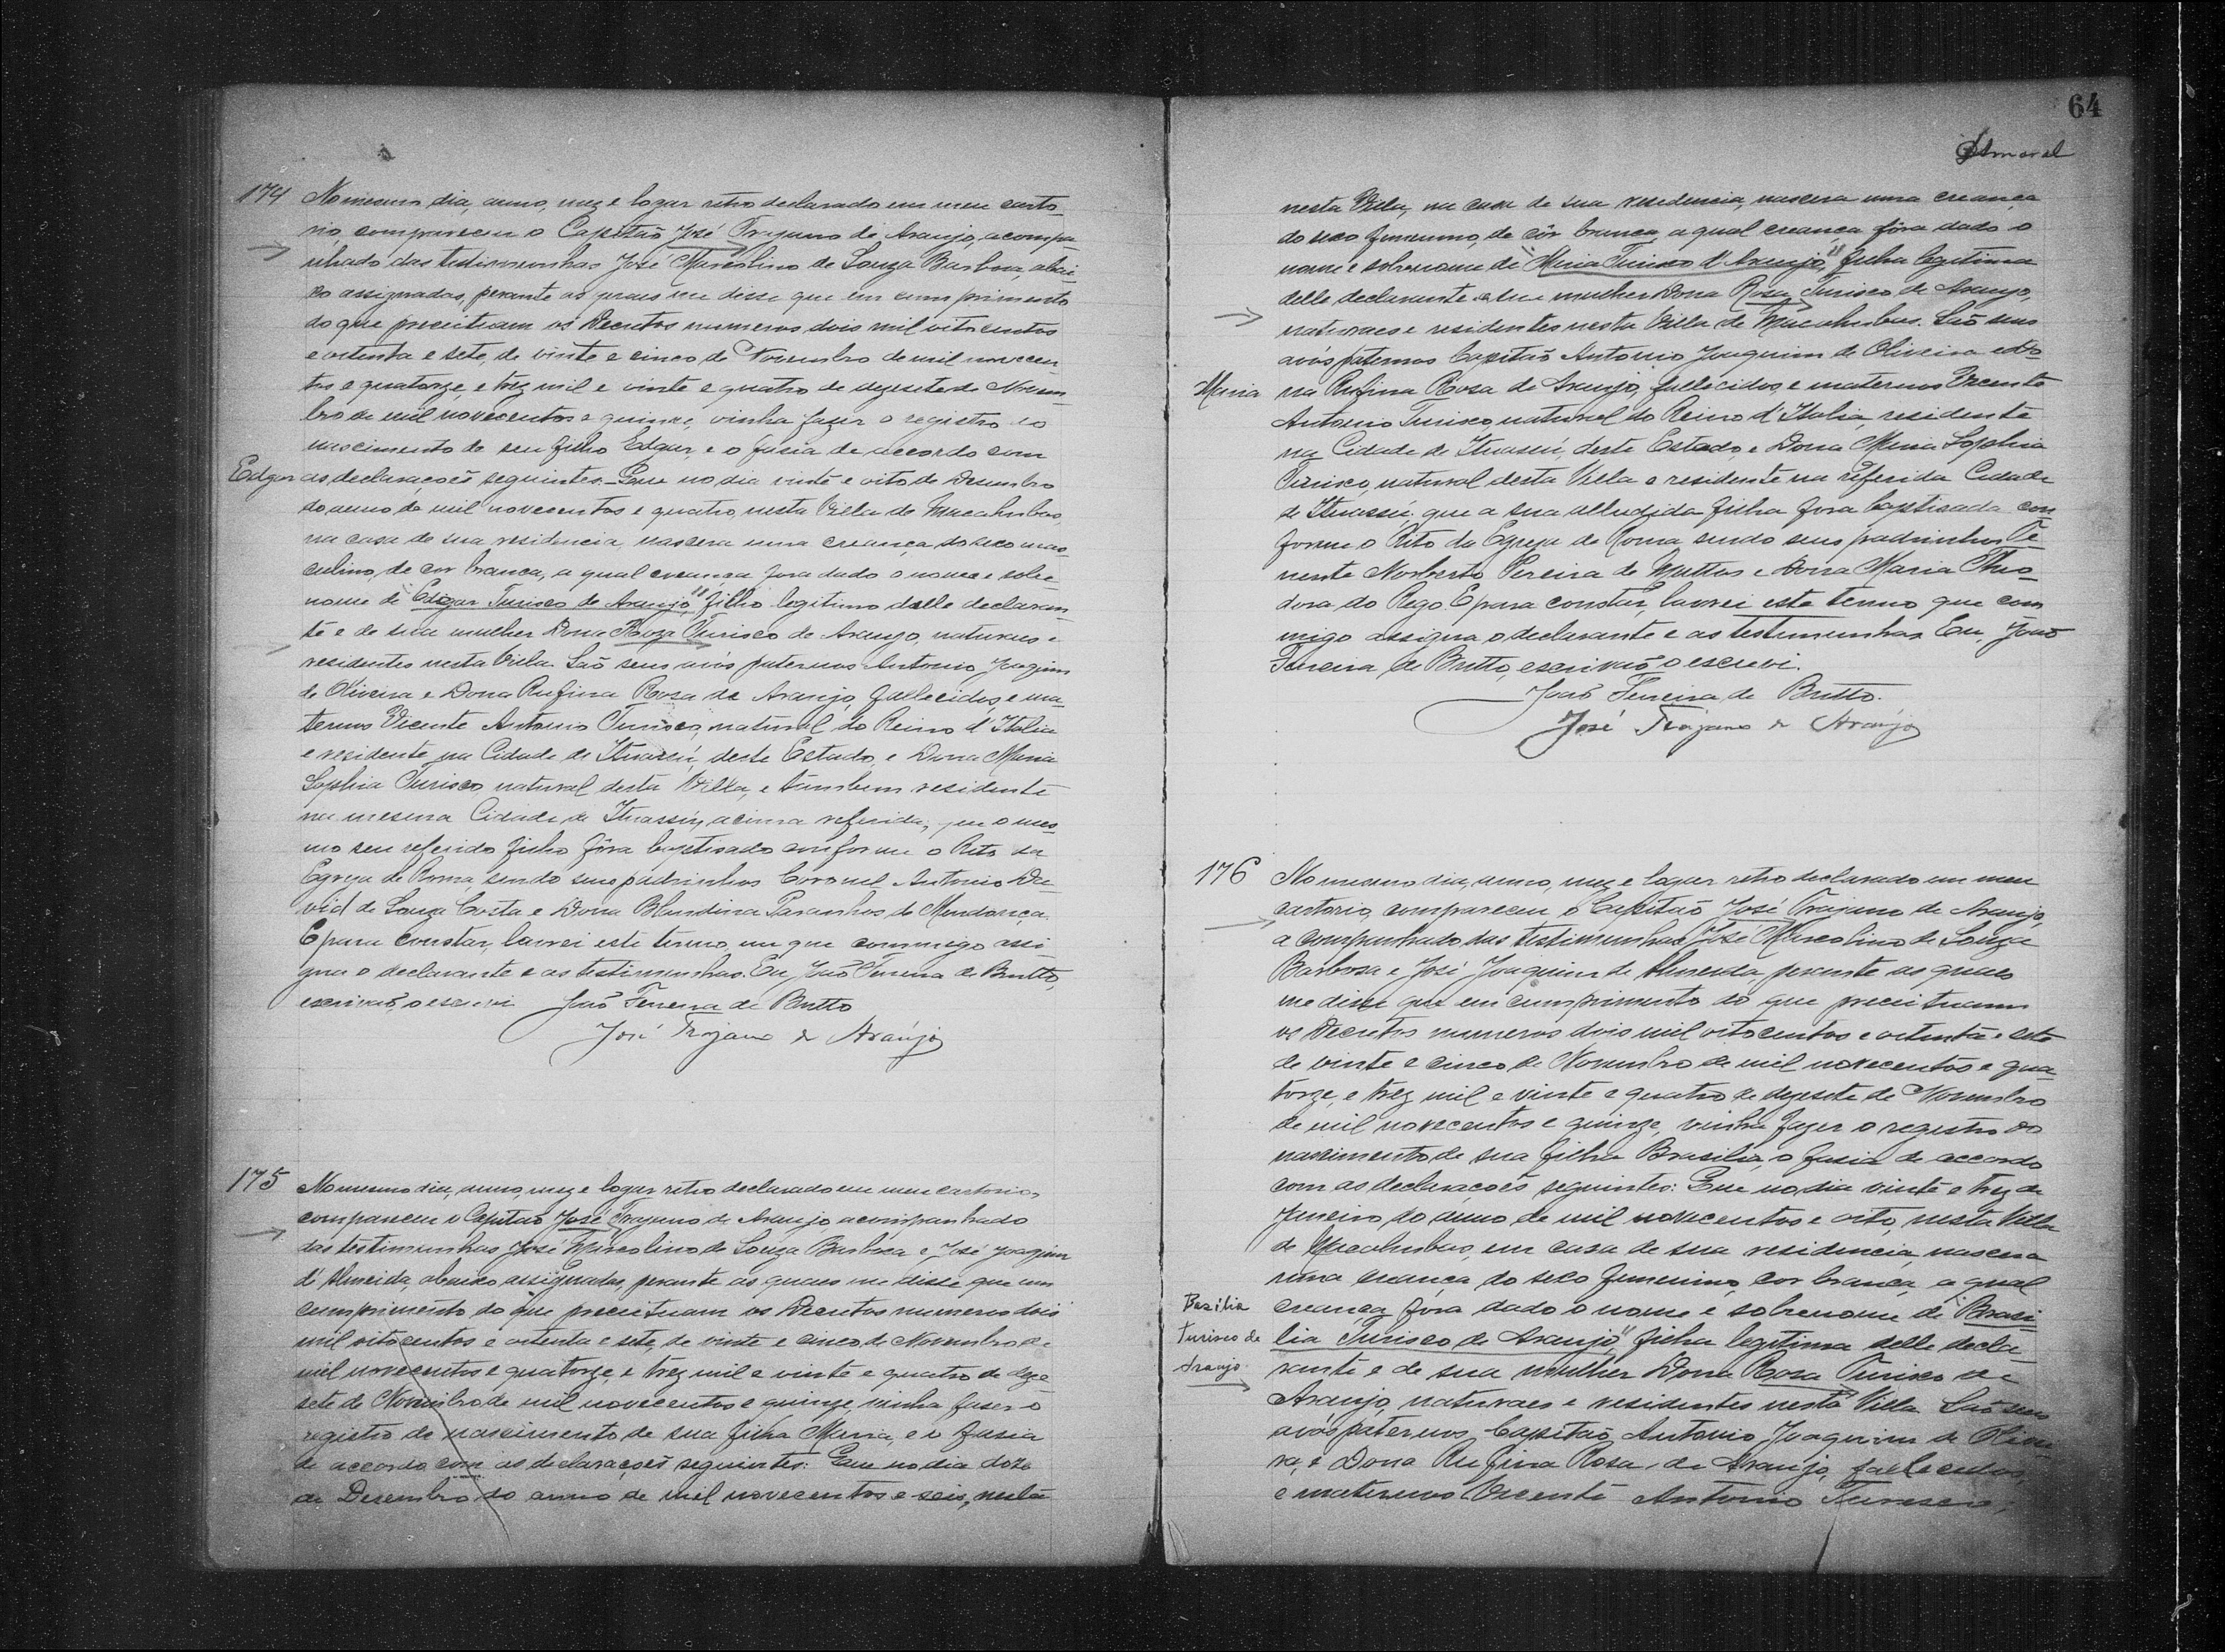 174 No mesmo dia, anno, mez e logar retro declarado em meu carto-
rio, compareceu o Capitão José Trajano de Araujo, acompa-
nhado das testimunhas José Marcolino de Souza Barbosa, abai-
xo assignadas, perante as quaes me disse que em cumprimento
do que preceituam os Decretos numeros dois mil oitocentos
e oitenta e sete, de vinte e cinco de Novembro de mil novecen-
tos e quatorze, e trez mil e vinte e quatro de dezesete de Novem-
bro de mil novecentos e quinze, vinha fazer o registro do
nascimento de seu filho Edgar, e o fasia de accordo com
Edgar as declarações seguintes: Que no dia vinte e oito de Desembro
do anno de mil novecentos e quatro, nesta Villa de Macahubas,
na casa de sua residencia, nascera uma creança do sexo mas-
culino, de cor branca, a qual creança fora dado o nome e sobre-
nome de "Edgar Turisco de Araujo," filho legitimo delle declaran-
te e de sua mulher Dona Roza Turisco de Araujo, naturaes e
residentes nesta Villa. São seus avós paternos Antonio Joaquim
de Oliveira e Dona Rufina Rosa de Araujo, fallecidos, e ma-
ternos Vicente Antonio Turisco, natural do Reino d'Italia
e residente na Cidade de Ituassú, deste Estado, e Dona Maria
Sophia Turisco, natural desta Villa, e tambem residente
na mesma Cidade de Ituassú, acima referida, que o mes-
mo seu referido filho fôra baptisado conforme o Rito da
Egreja de Roma, sendo seus padrinhos Coronel Antonio Da-
vid de Souza Costa e Dona Blandina Paranhos de Mendonça.
E para constar, lavrei este termo, em que commigo assi-
gna o declarante e as testimunhas. Eu, João Ferreira de Britto,
escrivão, o escrevi João Ferreira de Britto
José Trajano de Araújo
175 No mesmo dia, anno, mez e logar retro declarado em meu cartorio,
compareceu o Capitão José Trajano de Araujo acompanhado
das testimunhas José Marcolino de Souza Barbosa e José Joaquim
d'Almeida, abaixo assignadas, perante as quaes me disse que em
cumprimento do que preceituam os Decretos numeros dois
mil oitocentos e oitenta e sete, de vinte e cinco de Novembro de
mil novecentos e quatorze, e trez mil e vinte e quatro de deze-
sete de Novembro de mil novecentos e quinze, vinha faser o
registro de nascimento de sua filha Maria, e o fasia
de accordo com as declarações seguintes: Que no dia doze
de Desembro do anno de mil novecentos e seis, nesta
64
Amaral
nesta Villa, na casa de sua residencia, nascera uma creança
do sexo femenino, de côr branca, a qual creança fôra dado o
nome e sobrenome de "Maria Turisco d'Araujo," filha legitima
delle declarante e sua mulher Dona Rosa Turisco de Araujo,
naturaes e residentes nesta Villa de Macahubas. São seus
avós paternos Capitão Antonio Joaquim de Oliveira e Do-
Maria na Rufina Rosa de Araujo, fallecidos, e maternos Vicente
Antonio Turisco, natural do Reino d'Italia, residente
na Cidade de Ituassú, deste Estado, e Dona Maria Sophia
Turisco, natural desta Villa e residente na referida Cidade
de Ituassú; que a sua alludida filha fora baptisada con
forme o Rito da Egreja de Roma sendo seus padrinhos Te-
nente Norberto Pereira de Mattos e Dona Maria Theo-
dora do Rego. E para constar, lavrei este termo que com
migo assigna o declarante e as testimunhas. Eu, João
Ferreira de Britto, escrivão o escrevi.
João Ferreira de Britto.
José Trajano de Araújo
176 No mesmo dia, anno, mez e logar retro declarado em meu
cartorio, compareceu o Capitão José Trajano de Araujo,
a companhado das testimunhas José Marcolino de Souza
Barbosa e José Joaquim de Almeida perante as quaes
me disse que em cumprimento do que preceituam
os Decretos numeros dois mil oitocentos e oitenta e sete
de vinte e cinco de Novembro de mil novecentos e qua-
torze, e trez mil e vinte e quatro de dezesete de Novembro
de mil novecentos e quinze, vinha fazer o registro do
nascimento de sua filha Brasilia, o fasia de accordo
com as declarações seguintes: Que no dia vinte e trez de
Janeiro, do anno de mil novecentos e oito, nesta Villa
de Macahubas, em casa de sua residencia, nascera
uma creança, do sexo femenino, cor branca, a qual
creança fôra dado o nome e sobrenome de "Brasi-
Bazília
Turisco de
Araujo
lia Turisco de Araujo," filha legitima delle decla-
rante e de sua mulher Dona Rosa Turisco de
Araujo, naturaes e residentes nesta Villa. São seus
avós paternos Capitão Antonio Joaquim de Olivei-
ra, e Dona Rufina Rosa de Araujo, fallecidos,
e maternos Vicente Antonio Turisco,